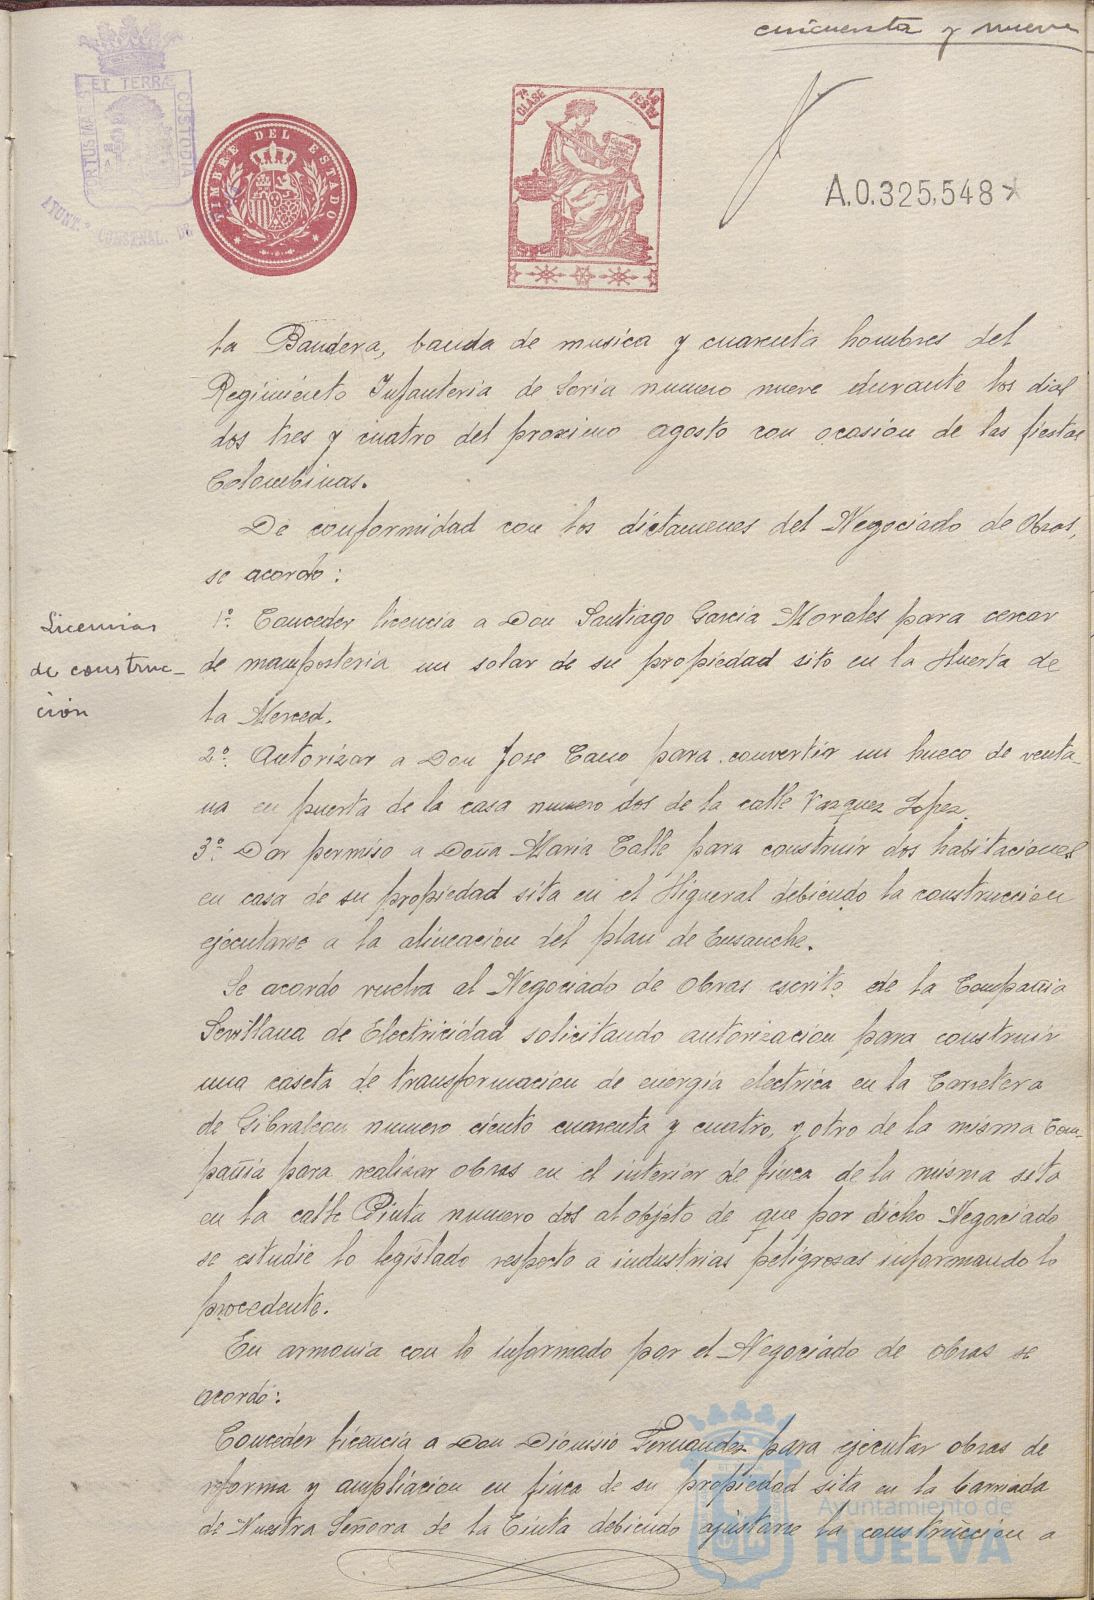 cincuenta y nueve
ET TERRÆ
CUSTODIA
AYUNT.º CONSTNAL. DE
TIMBRE DEL ESTADO
7ª CLASE
A.0.325,548
la Bandera, banda de musica y cuarenta hombres del
Regimiento Infanteria de Soria numero nueve durante los dias
dos tres y cuatro del proximo agosto con ocasion de las fiestas
Colombinas.
De conformidad con los dictamenes del Negociado de Obras,
se acordo:
Licencias
de construc-
ción
1º. Conceder licencia a Don Santiago Garcia Morales para cercar
de mamposteria un solar de su propiedad sito en la Huerta de
la Merced.
2º. Autorizar a Don Jose Cano para convertir un hueco de venta-
na en puerta de la casa numero dos de la calle Vazquez Lopez.
3º. Dar permiso a Doña Maria Calle para construir dos habitaciones
en casa de su propiedad sita en el Higueral debiendo la construccion
ejecutarse a la alineacion del plan de Ensanche.
Se acordo vuelva al Negociado de Obras escrito de la Compañia
Sevillana de Electricidad solicitando autorizacion para construir
una caseta de transformacion de energia electrica en la Carretera
de Gibraleon numero ciento cuarenta y cuatro, y otro de la misma Com-
pañia para realizar obras en el interior de finca de la misma sita
en la calle Pinta numero dos al objeto de que por dicho Negociado
se estudie lo legislado respecto a industrias peligrosas informando lo
procedente.
En armonia con lo informado por el Negociado de obras se
acordó:
Conceder licencia a Don Dionisio Fernandez para ejecutar obras de
reforma y ampliacion en finca de su propiedad sita en la barriada
de Nuestra Señora de la Cinta debiendo ajustarse la construccion a
Ayuntamiento de
HUELVA